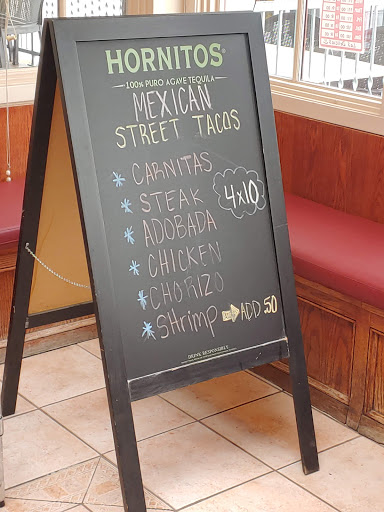 HORNITOS®
100% PURO AGAVE TEQUILA
MEXICAN
STREET TACOS
* CARNITAS
* STEAK
4x10
* ADOBADA
* CHICKEN
* CHORIZO
* Shrimp ADD 50
DRINK RESPONSIBLY